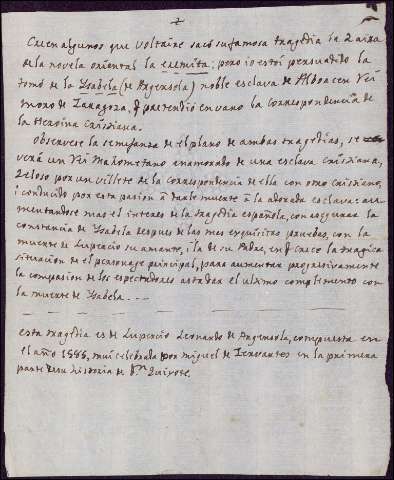 Creen algunos que Voltaire sacó su famosa tragedia la Zaira
de la novela oriental la eremita; pero io estoi persuadido la
tomó de la Ysabela (de Argensola) noble esclava de Alboacen Rei
moro de Zaragoza, q pretendió en vano la correspondencia de
la Heroina Cristiana.
Observese la semejanza de el plano de ambas tragedias, se
verá un Rei Mahometano enamorado de una esclava Cristiana,
zeloso por un villete de la correspondencia de ella con otro Cristiano,
i conducido por esta pasion á darle muerte á la adorada esclava: au
mentandose mas el interes de la tragedia española, con asegurar la
constancia de Ysabela despues de las mas exquisitas pruebas, con la
muerte de Lupercio su amante, i la de su Padre, en q crece la tragica
situacion de el personage principal, para aumentar progresivamente
la compasion de los espectadores
el ultimo complemento con
la muerte de Ysabela. - - -
esta tragedia es de Lupercio Leonardo de Argensola, compuesta en
el año 1585, mui celebrada por Miguel de Cervantes en la primera
parte de su historia de Dn Quixote.